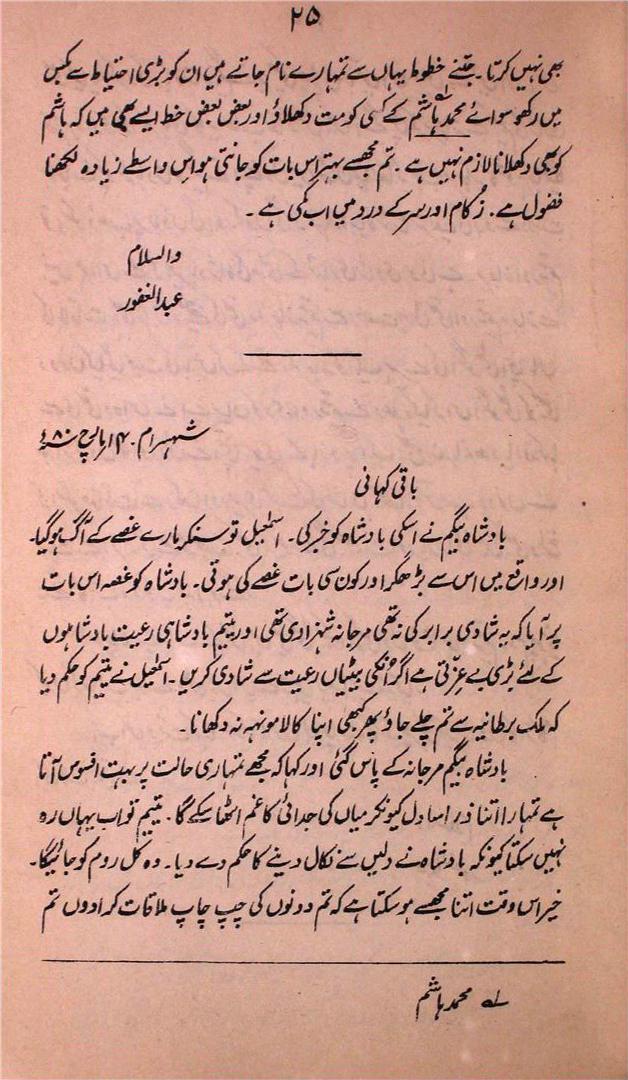 ۲۵
بھی نہیں کرتا۔ جتنے خطوط یہاں سے تمہارے نام جاتے ہیں ان کو بڑی احتیاط سے بکس
میں رکھو سوائے محمد ہاشم کے کسی کو مت دکھلاؤ اور بعض بعض خط ایسے بھی ہیں کہ ہاشم
کو بھی دکھلانا لازم نہیں ہے۔ تم مجھسے بہتر اس بات کو جانتی ہو اس واسطے زیادہ لکھنا
فضول ہے۔ زکام اور سر کے درد میں اب کمی ہے۔
والسلام
عبدالغفور
شہسرام۔ ۱۴ مارچ ۸۰ء
باقی کہانی
بادشاہ بیگم نے اسکی بادشاہ کو خبر کی۔ اسمٰعیل تو سنکر مارے غصے کے آگ ہوگیا۔
اور واقع میں اس سے بڑھکر اور کون سی بات غصے کی ہوتی۔ بادشاہ کو غصہ اس بات
پر آیا کہ یہ شادی برابر کی نہ تھی مرجانہ شہزادی تھی اور یتیم بادشاہی رعیت بادشاہوں
کے لئے بڑی بے عزّتی ہے اگر اُنکی بیٹیاں رعیت سے شادی کریں۔ اسمٰعیل نے یتیم کو حکم دیا
کہ ملک برطانیہ سے تم چلے جاؤ پھر کبھی اپنا کالا مونہہ نہ دکھانا۔
بادشاہ بیگم مرجانہ کے پاس گئی اور کہا کہ مجھے تمہاری حالت پر بہت افسوس آتا
ہے تمہارا اتنا ذرا سا دل کیونکر میاں کی جدائی کا غم اٹھا سکے گا۔ یتیم تو اب یہاں رہ
نہیں سکتا کیونکہ بادشاہ نے دیس سے نکال دینے کا حکم دے دیا۔ وہ کل روم کو جائیگا۔
خیر اس وقت اتنا مجھسے ہو سکتا ہے کہ تم دونوں کی چپ چاپ ملاقات کرا دوں تم
لے محمد ہاشم